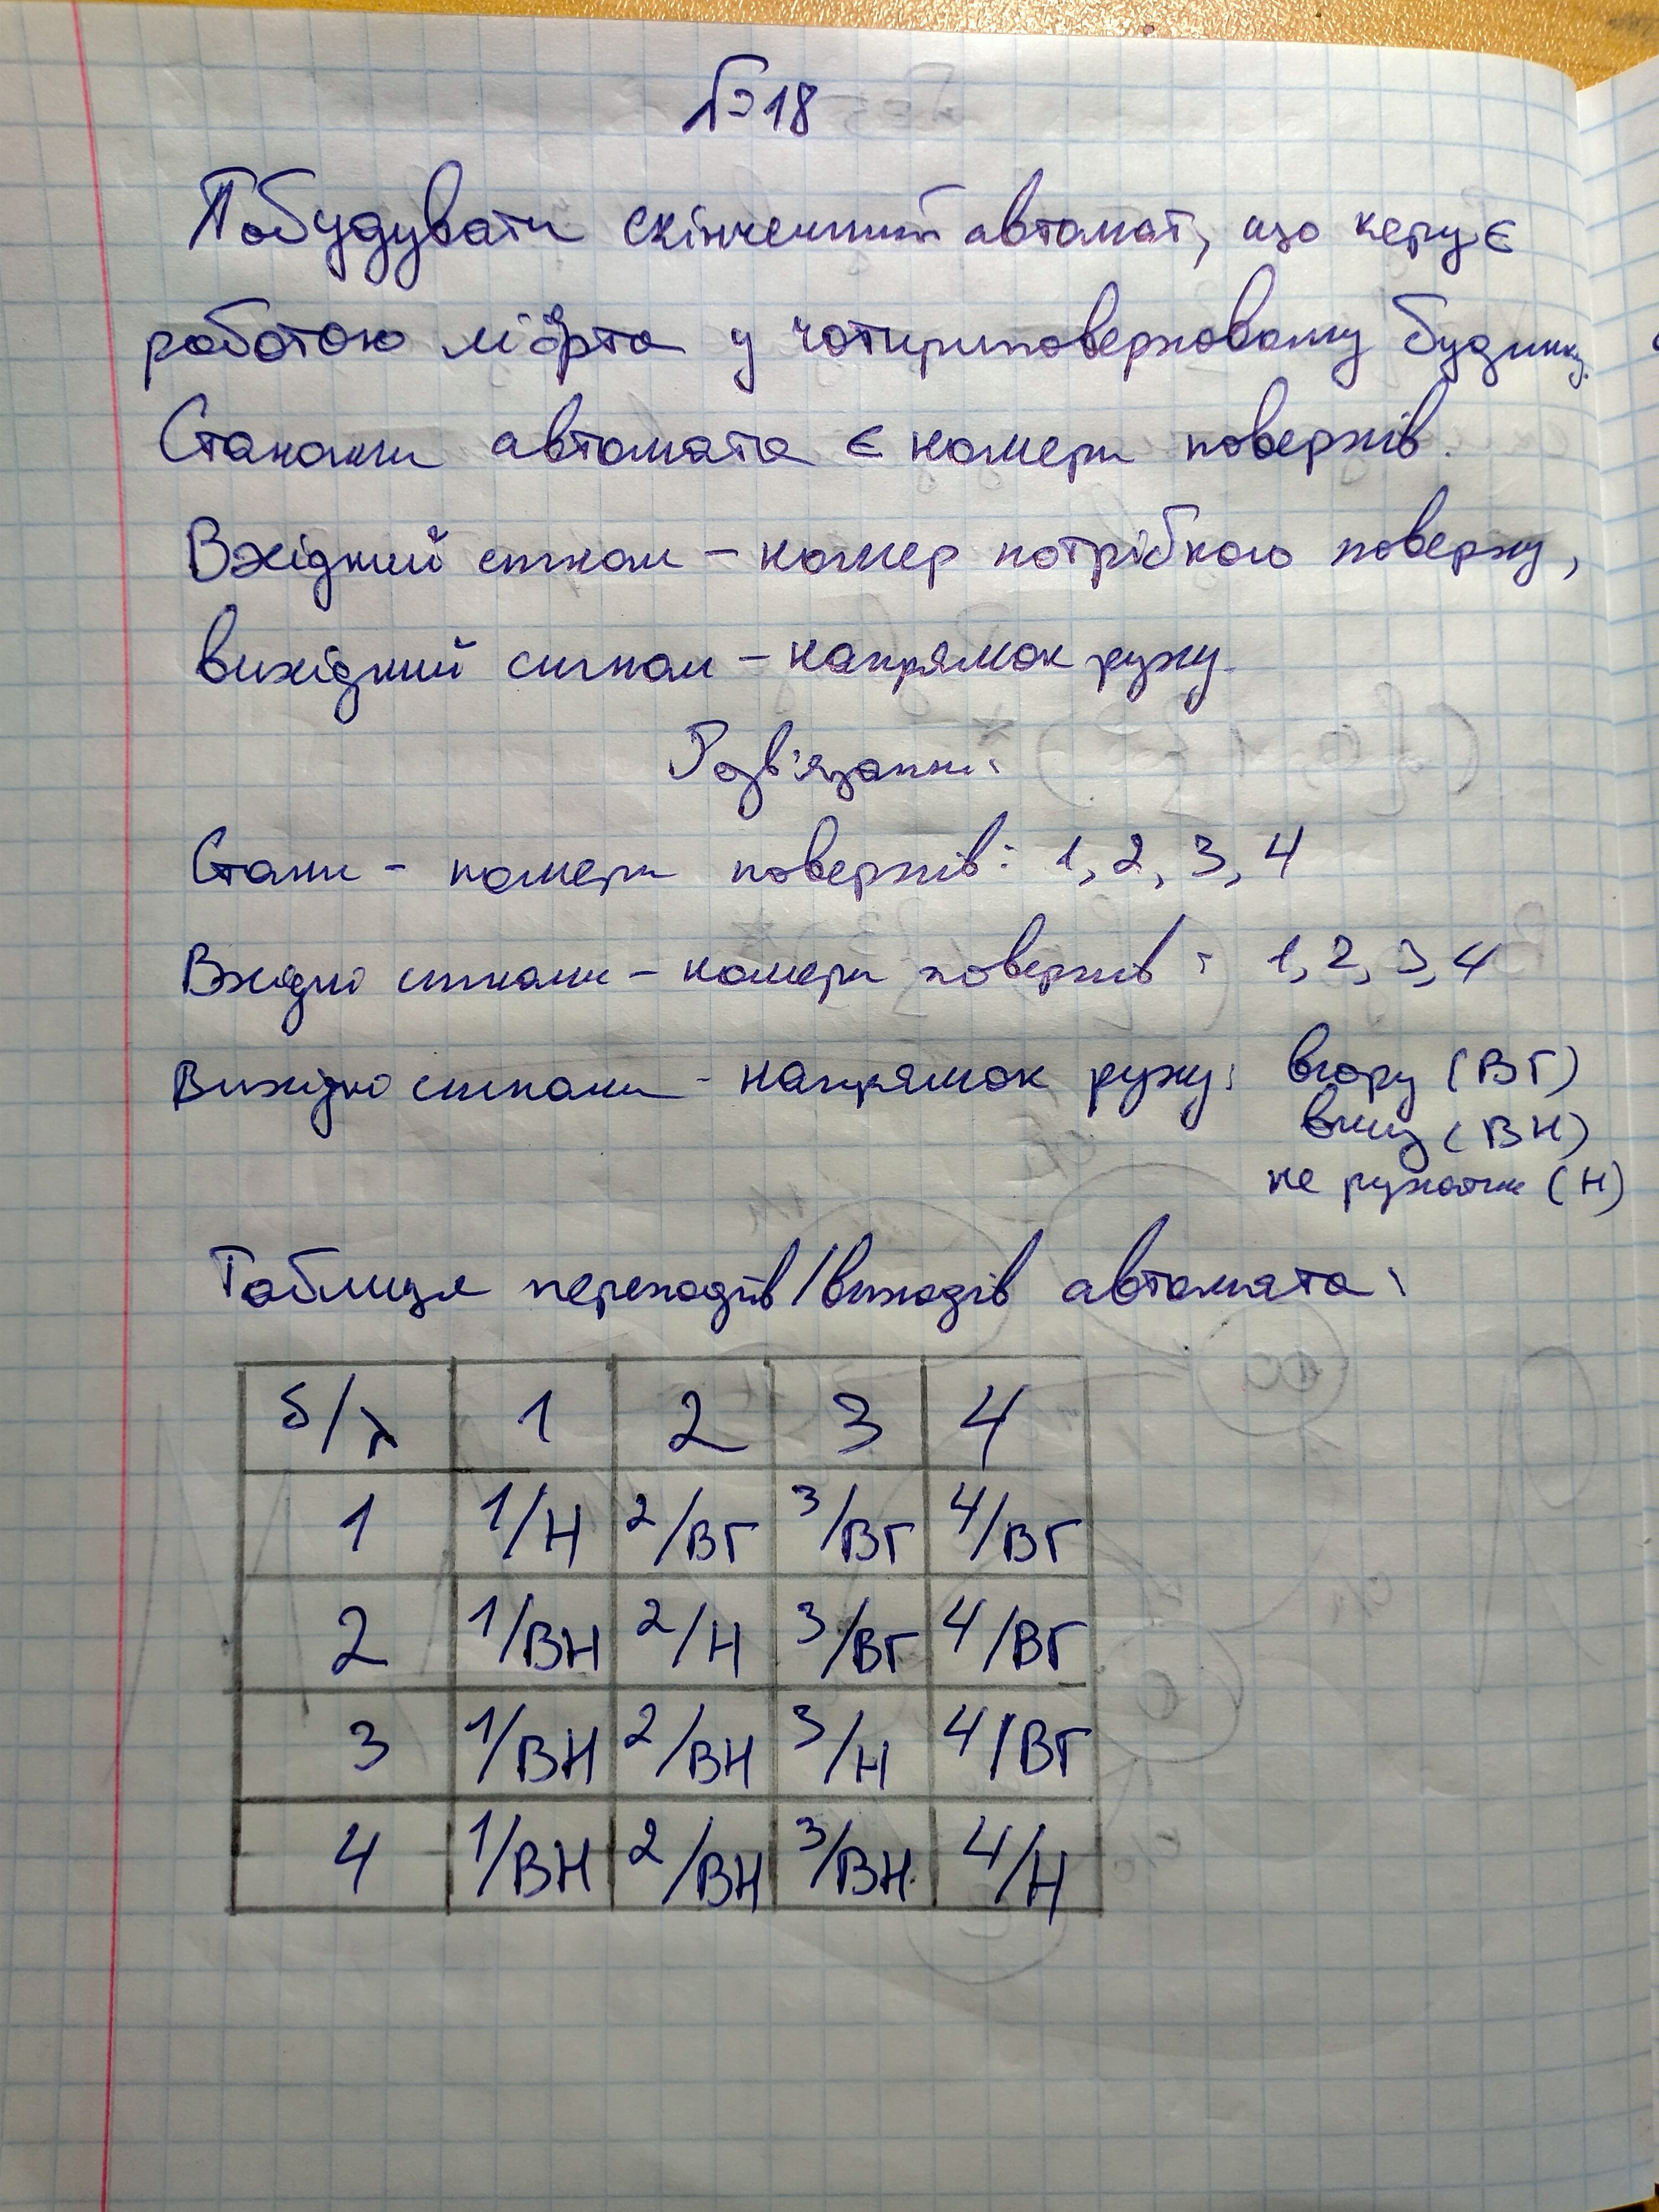 №18
Побудувати скінченний автомат, що керує
роботою ліфта у чотириповерховому будинку.
Станами автомата є номери поверхів.
Вхідний сигнал – номер потрібного поверху,
вихідний сигнал – напрямок руху.
Розв'язання:
Стани – номери поверхів: 1, 2, 3, 4
Вхідні сигнали – номери поверхів: 1, 2, 3, 4
Вихідні сигнали – напрямок руху: вгору (ВГ)
вниз (ВН)
не рухатись (Н)
Таблиця переходів/виходів автомата:
δ/λ 1 2 3 4
1 1/Н 2/ВГ 3/ВГ 4/ВГ
2 1/ВН 2/Н 3/ВГ 4/ВГ
3 1/ВН 2/ВН 3/Н 4/ВГ
4 1/ВН 2/ВН 3/ВН 4/Н